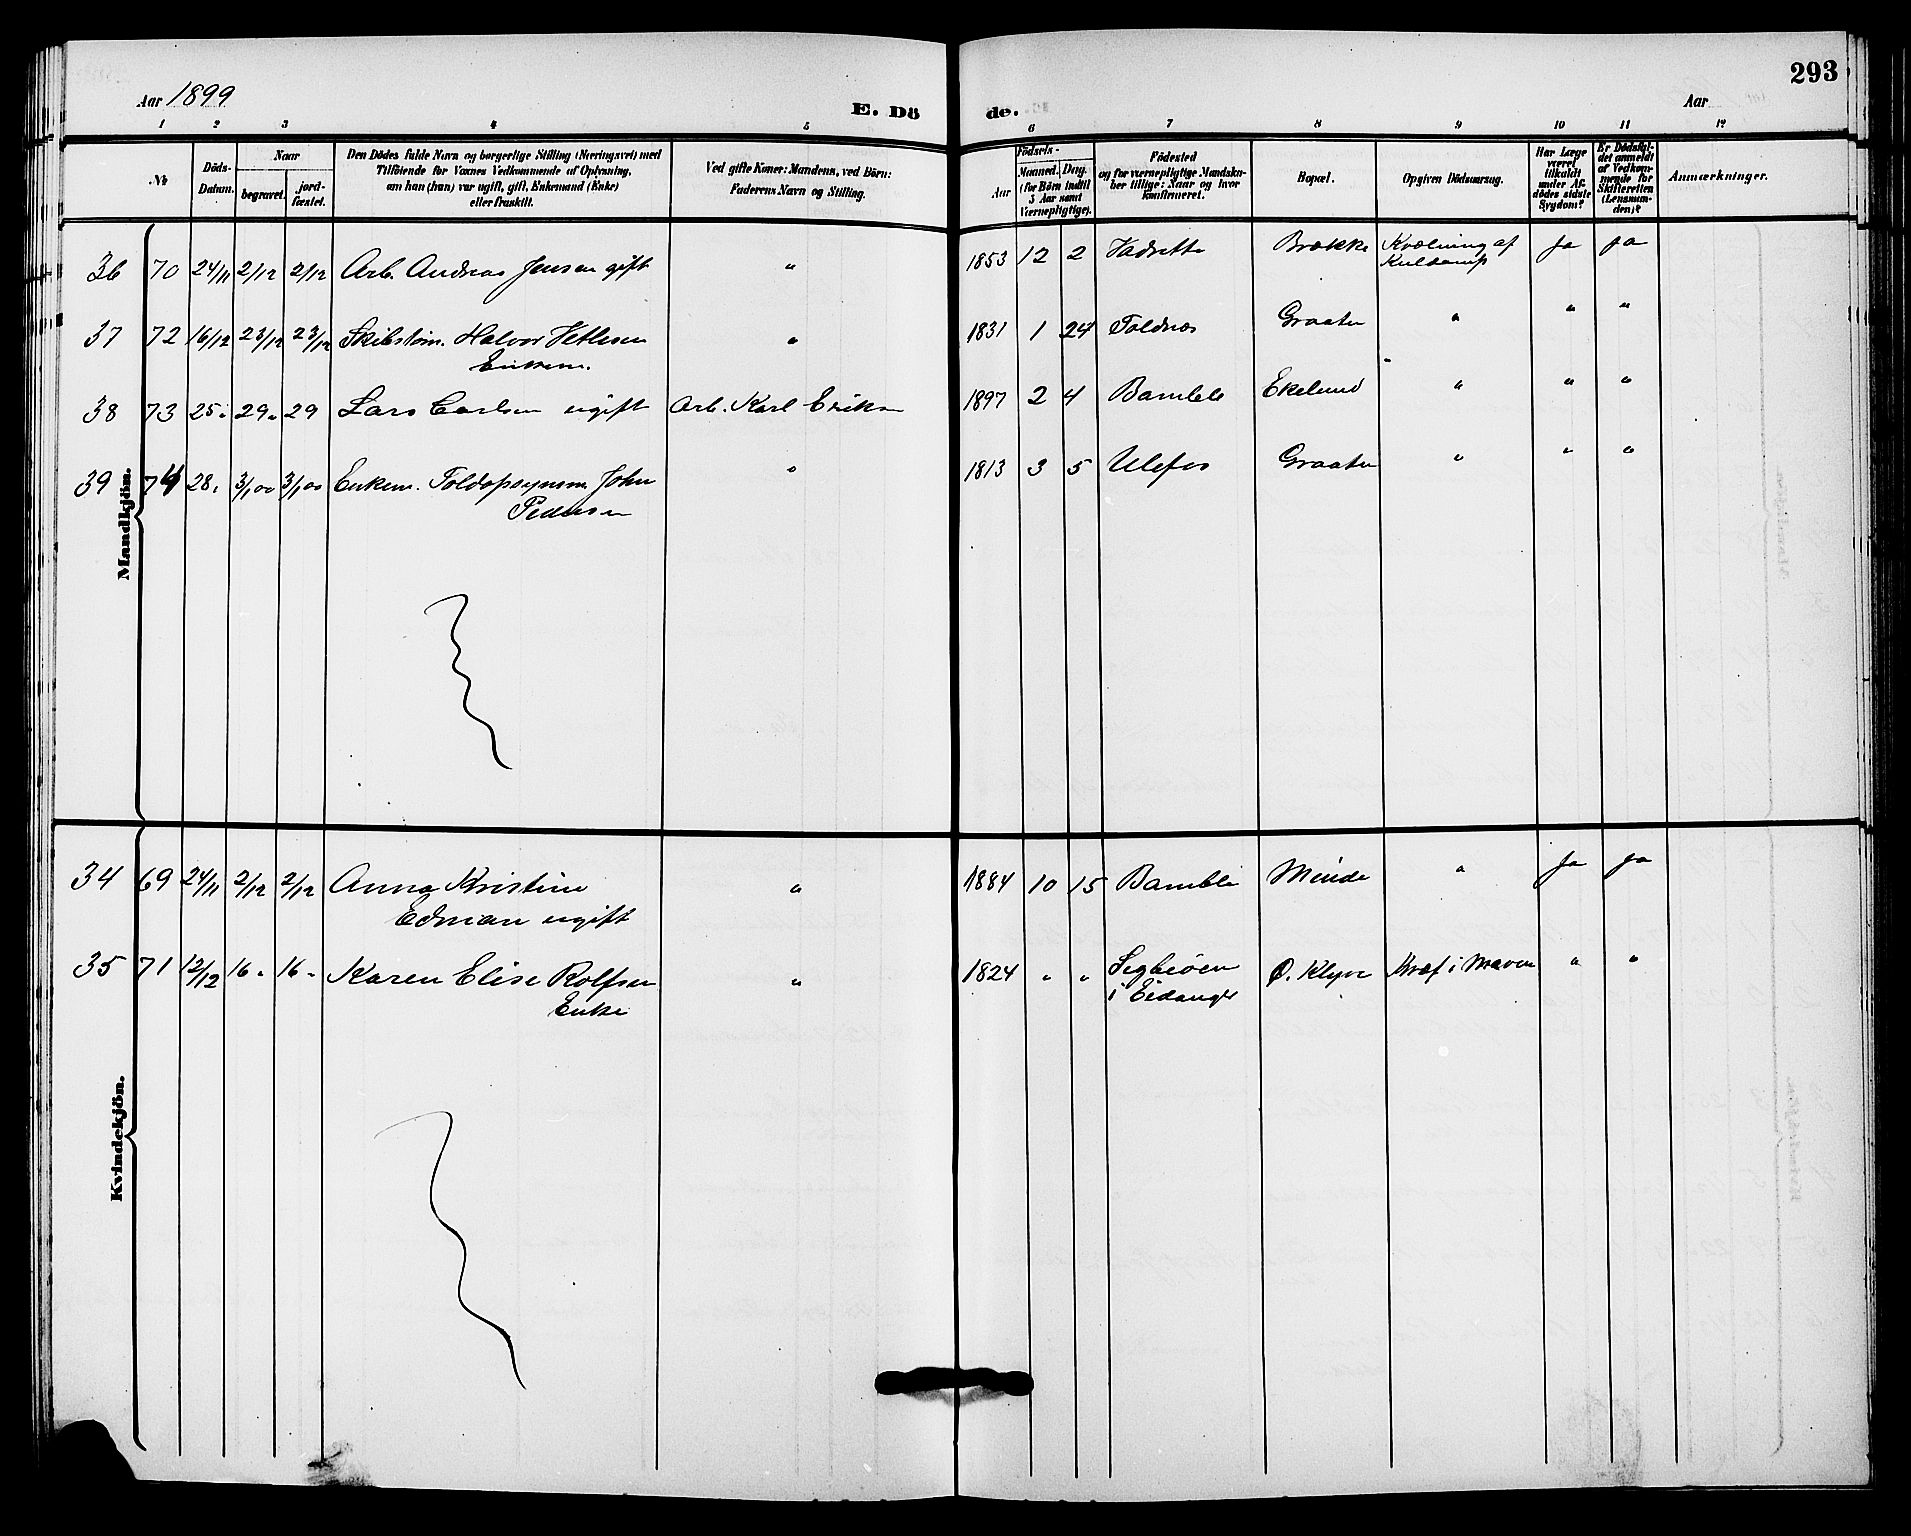 293
Aar 1899
E. Dö de.
Aar
1 2 3 4 5 6 7 8 9 10 11 12
No
Döds-Datum.
Naar
begravet.
jord-fæstet.
Den Dödes fulde Navn og borgerlige Stilling (Næringsvei) med
Tilföiende for Voxnes Vedkommende af Oplysning,
om han (hun) var ugift, gift, Enkemand (Enke)
eller fraskilt.
Ved gifte Koner: Mandens, ved Börn:
Faderens Navn og Stilling.
Födsels-
Aar
Maaned. Dag.
(for Börn indtil
3 Aar samt
Værnepligtige).
Födested
og for værnepligtige Mandskaber tillige: Naar og hvor
konfirmeret.
Bopæl.
Opgiven Dödsaarsag.
Har Læge
været
tilkaldt
under Afdödes sidste
Sygdom?
Er Dödsfaldet anmeldt
af Vedkommende for
Skifteretten
(Lensmanden)?
Anmærkninger.
Mandkjön.
36 70 24/11 2/12 2/12 Arb. Andreas Jensen gift " 1853 12 2 Brække Kvælning af Ja Ja
Kuldamp
37 72 16/12 23/12 23/12 Skibstøm. Halvor Vetlesen " 1831 1 24 Toldnes Graaten " " "
Enkem.
38 73 25" 29" 29 Lars Carlsen ugift Arb. Karl Eriksen 1897 2 4 Bamble Ekelund " " "
39 74 28" 3/1 00 3/1 00 Enkem. Toldopsynsm. John " 1813 3 5 Ulefos Graaten " " "
Pedersen
Kvindekjön.
34 69 24/11 2/12 2/12 Anna Kristine " 1884 10 15 Bamble Minde " Ja Ja
Edman ugift
35 71 12/12 16" 16" Karen Elise Rolfsen " 1824 " " Ø. Klyve Kræf i Maven " "
Enke i Eidanger